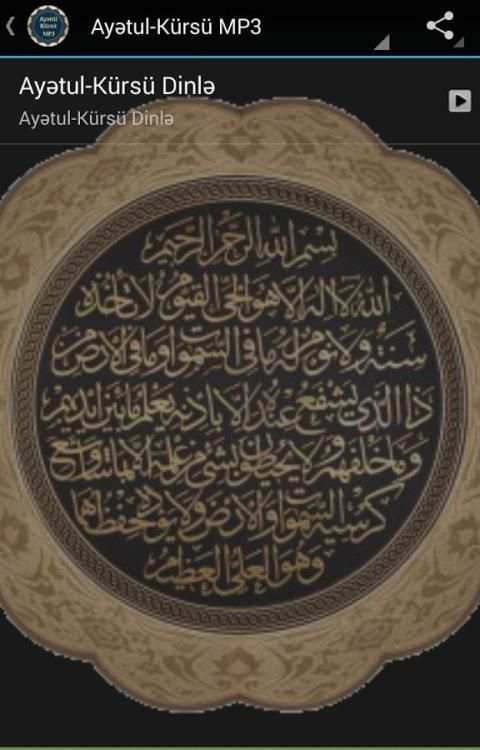 Ayətul-Kürsü MP3
Ayətul-Kürsü Dinlə
Ayətul-Kürsü Dinlə
بسم الله الرحمن الرحيم
الله لا اله الا هو الحي القيوم لا تأخذه
سنة ولا نوم له ما في السموات وما في الارض من
ذا الذي يشفع عنده الا باذنه يعلم ما بين ايديهم
وما خلفهم ولا يحيطون بشيء من علمه الا بما شاء وسع
كرسيه السموات والارض ولا يؤده حفظهما
وهو العلي العظيم